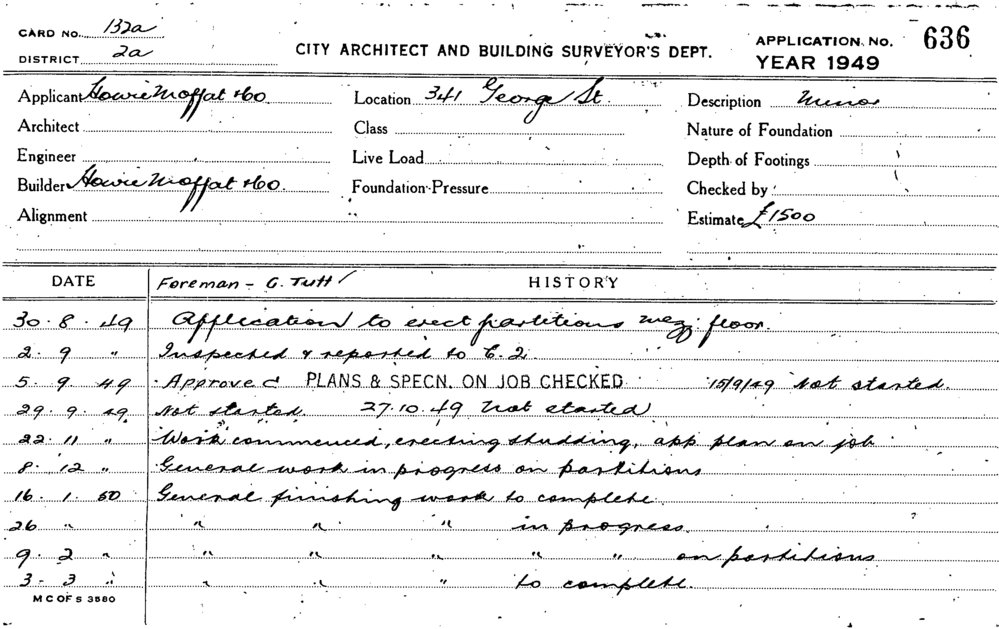 CARD No. 132a
DISTRICT 2a
CITY ARCHITECT AND BUILDING SURVEYOR'S DEPT.
APPLICATION. No. 636
YEAR 1949
Applicant Howie Moffat & Co. Location 341 George St. Description Minor
Architect Class Nature of Foundation
Engineer Live Load Depth of Footings
Builder Howie Moffat & Co. Foundation Pressure Checked by
Alignment Estimate £1500
DATE Foreman - G. Tutt HISTORY
30. 8. 49 Application to erect partitions mezz. floor.
2. 9 " Inspected & reported to C. 2.
5. 9. 49 Approved PLANS & SPECN. ON JOB CHECKED 15/9/49 Not started.
29. 9. 49 Not started. 27.10.49 Not started
22. 11 " Work commenced, erecting studding, app plan on job
8. 12 " General work in progress on partitions
16. 1. 50 General finishing work to complete.
26 " " " " in progress.
9. 2 " " " " " " on partitions
3. 3 " " " " to complete.
M C OF S 3580